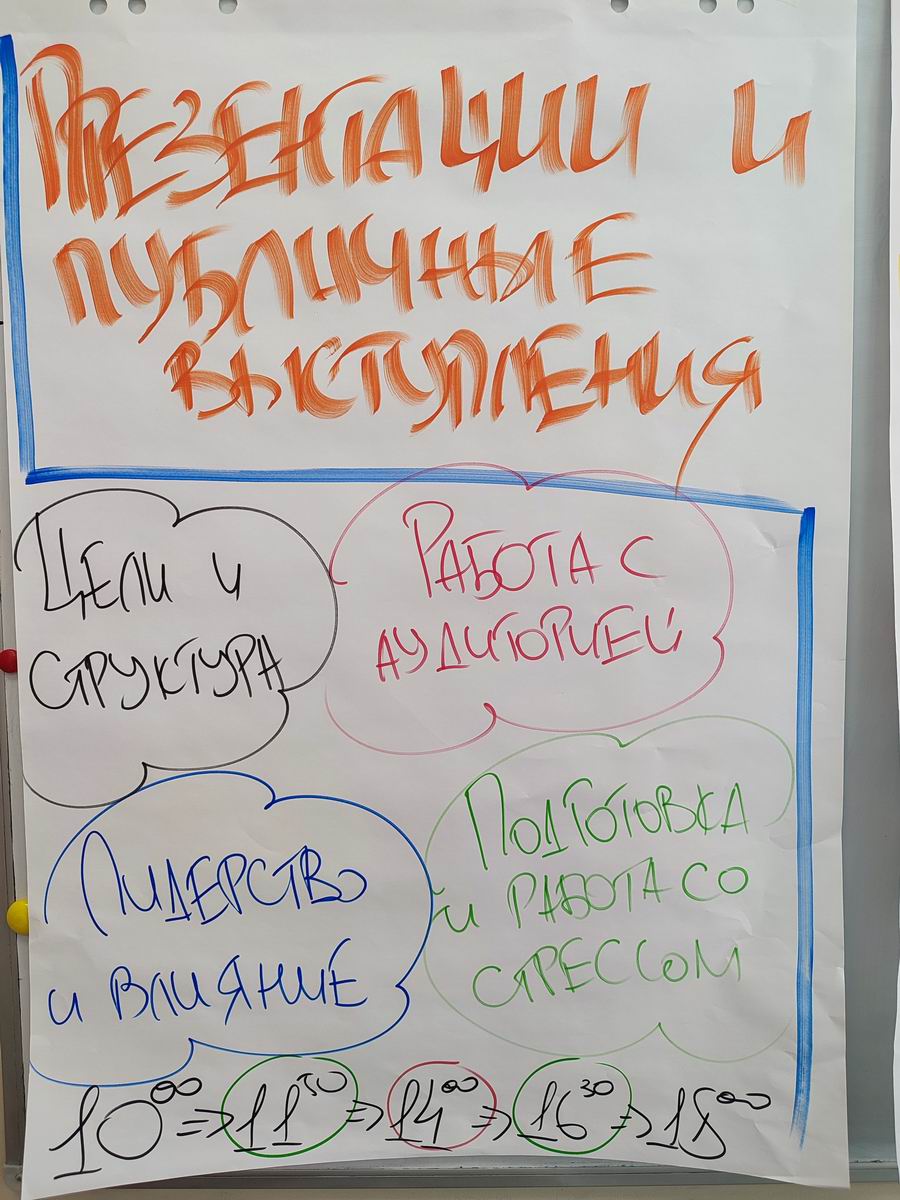 ПРЕЗЕНТАЦИИ И
ПУБЛИЧНЫЕ
ВЫСТУПЛЕНИЯ
ЦЕЛИ И
СТРУКТУРА
РАБОТА С
АУДИТОРИЕЙ
ЛИДЕРСТВО
И ВЛИЯНИЕ
ПОДГОТОВКА
И РАБОТА СО
СТРЕССОМ
10⁰⁰ => 11³⁰ => 14⁰⁰ => 16³⁰ => 18⁰⁰